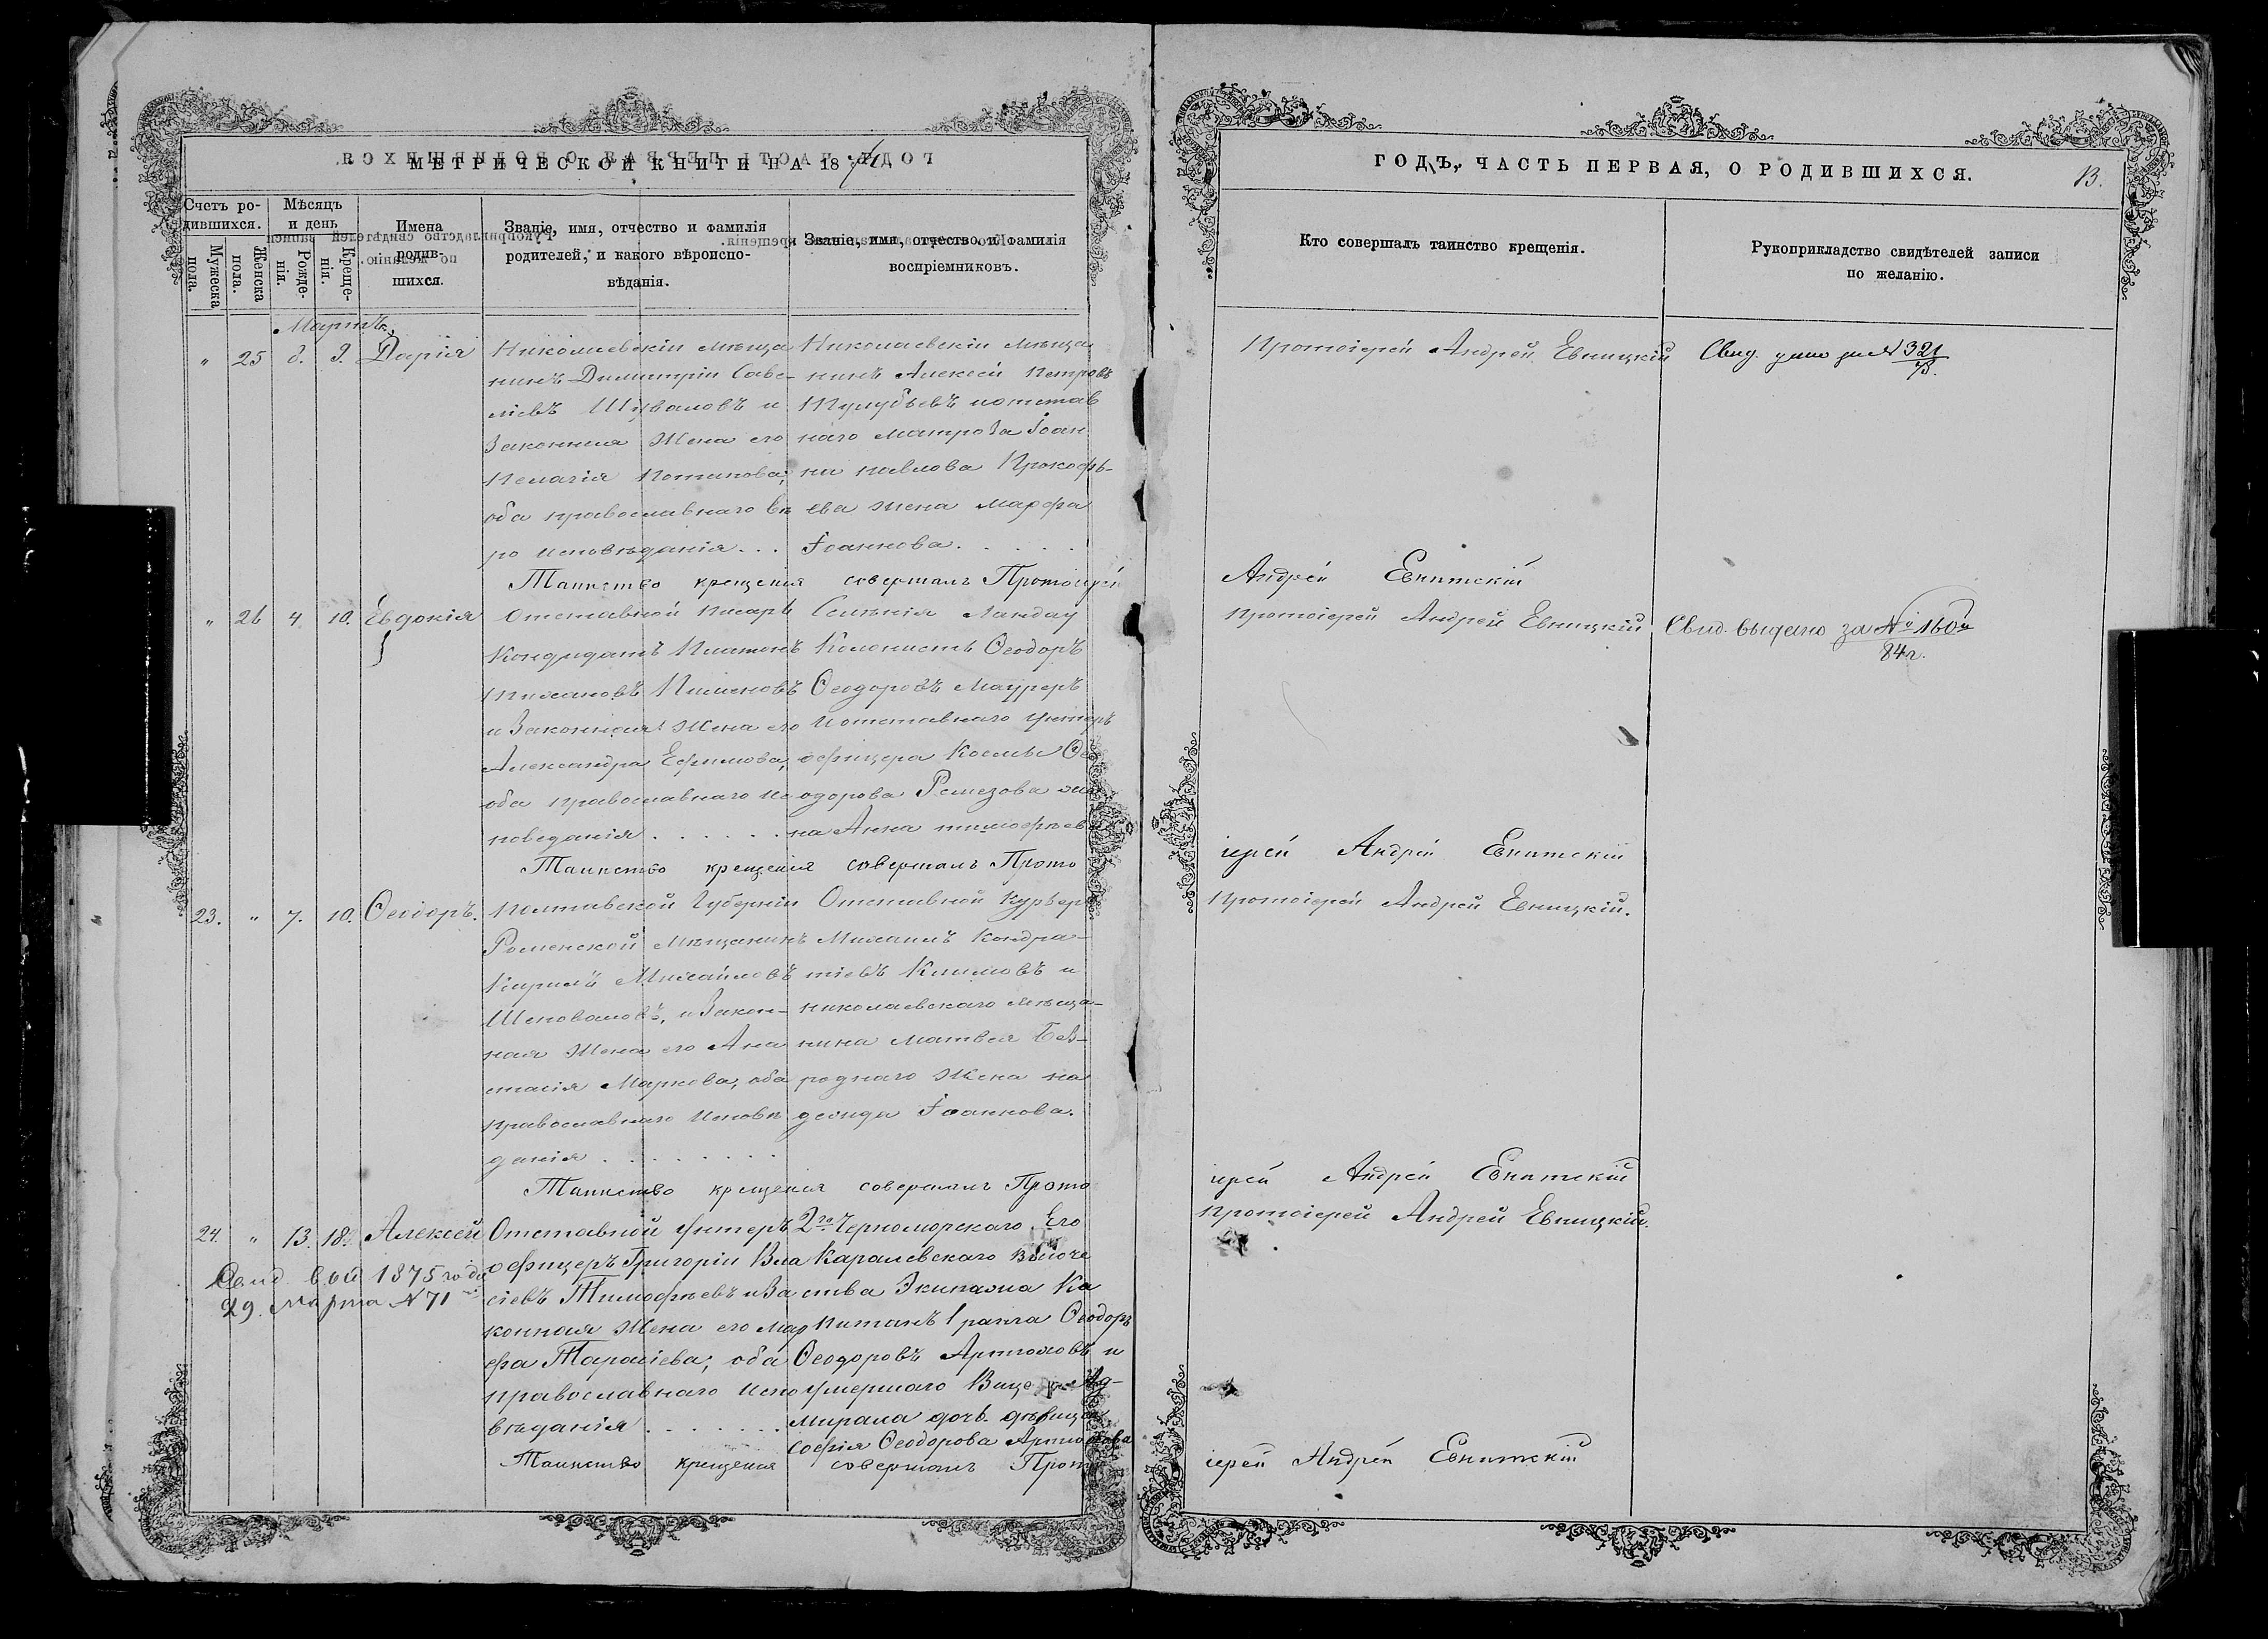 МЕТРИЧЕСКОЙ КНИГИ НА 1874
Счетъ ро-
дившихся.
Мужеска
пола.
Женска
пола.
Мѣсяцъ
и день
Рожде-
нія.
Креще-
нія.
Имена
родив-
шихся.
Званіе, имя, отчество и фамилія
родителей, и какого вѣроиспо-
вѣданія.
Званіе, имя, отчество, и фамилія
воспріемниковъ.
Мартъ
" 25 9. Дарія
Николаевскій мѣща
нинъ Димитрій Саве-
ліевъ Шуваловъ и
Законная Жена его
Пелагія Потапова;
оба православнаго вѣ
ро исповѣданія...
Николаевскій мѣща
нинъ Алексѣй Петровъ
и отстав
наго матроза Іоан
на Павлова Прокофь-
ева жена Марфа
Іоаннова.
Таинство крещенія совершалъ Протоіерей
" 26 4 10. Евдокія
Отставной писарь
Кондидатъ Платонъ
Пименовъ
и Законная Жена его
Александра Ефимова,
оба православнаго ис
поведанія......
Селенія Ландау
Колонистъ Ѳеодоръ
Ѳеодоровъ Мауреръ
и отставнаго унтеръ
офицера Космы Ѳе
одорова Ремезова
на Анна тимофѣев
Таинство крещенія совершалъ Прото
23. " 7. 10. Ѳеодоръ.
Полтавской Губерніи
Роменской мѣщанинъ
Кирилъ Михайловъ
Шеповаловъ, и Закон-
ная Жена его Ана
стасія Маркова, оба
православнаго исповѣ
данія........
Отставной Курьеръ
Михаилъ Кондра-
тіевъ Климовъ и
николаевскаго мѣща-
нина Матвея Без-
роднаго Жена на
дежда Іоаннова.
Таинство крещенія совершалъ Прото
24. " 13. 18. Алексей
Отставной унтеръ
офицеръ Григорій Вла
сіевъ Тимофѣевъ и За
конная Жена его мар
фа Тарасіева; оба
православнаго испо
вѣданія.......
2го Черноморскаго Его
Каралевскаго высоче
ства Экипажа Ка
питанъ 1 ранга Ѳеодоръ
Ѳеодоровъ Артюховъ и
умершаго Вице Ад-
мирала дочь дѣвица
Софія Ѳеодорова
Свид. 1875 года
29. Марта № 71
Таинство крещенія совершалъ Прото
ГОДЪ, ЧАСТЬ ПЕРВАЯ, О РОДИВШИХСЯ.
13.
Кто совершалъ таинство крещенія.
Рукоприкладство свидѣтелей записи
по желанію.
Протоіерей Андрей Евницкій
Свид. за № 321
Андрей Евницкій
Протоіерей Андрей Евницкій
Свид. выдано за № 160
84 г.
іерей Андрей Евницкій
Протоіерей Андрей Евницкій.
іерей Андрей Евницкій
Протоіерей Андрей Евницкій.
іерей Андрей Евницкій